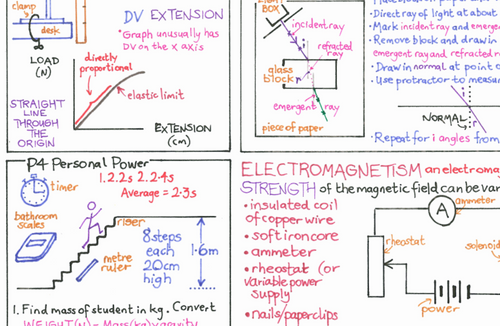 clamp
desk
DV EXTENSION
•Graph unusually has
DV on the x axis
LOAD
(N)
directly
proportional
elastic limit
STRAIGHT
LINE
THROUGH
THE
ORIGIN
EXTENSION
(cm)
BOX
incident ray
refracted
ray
glass
block
emergent ray
piece of paper
•Direct ray of light at about
•Mark incident ray and emerge
•Remove block and draw in
emergent ray and refracted r
•Draw in normal at point o
•Use protractor to measu
NORMAL
•Repeat for i angles from
P4 Personal Power
timer
1.2.2s 2.2.4s
Average = 2.3s
bathroom
scales
riser
metre
ruler
8 steps
each
20cm
high
1.6m
1. Find mass of student in kg. Convert
WEIGHT(N) = Mass(kg) x gravity
ELECTROMAGNETISM an electroma
STRENGTH of the magnetic field can be var
•insulated coil
of copper wire
•soft iron core
•ammeter
•rheostat (or
variable power
supply)
•nails/paperclips
A
ammeter
rheostat
solenoid
power